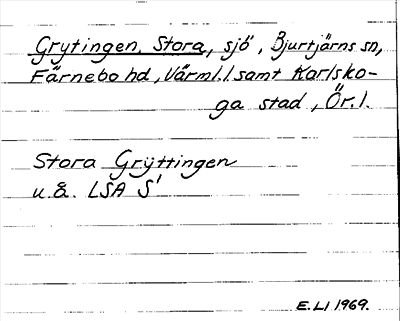 Grytingen, Stora, sjö, Bjurtjärns sn,
Färnebo hd, Värml.l samt Karlsko-
ga stad, Ör.l.
Stora Grÿttingen
u.å. LSA S'
E.LI 1969.